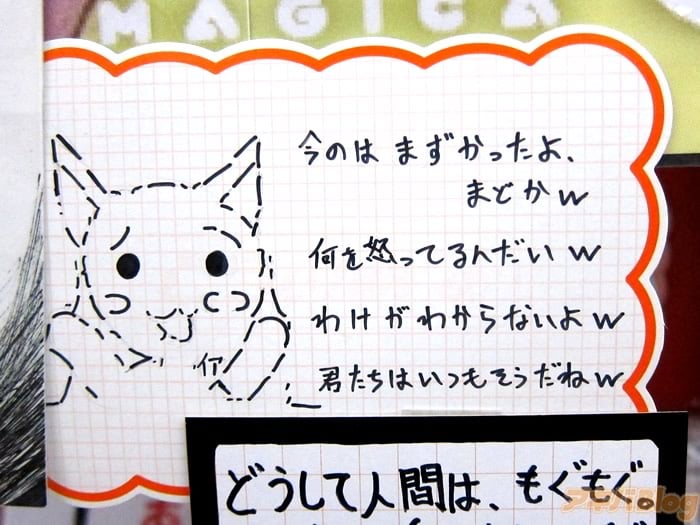 MAGICA
今のは まずかったよ、
まどかw
何を怒ってるんだいw
わけがわからないよw
君たちはいつもそうだねw
どうして人間は、もぐもぐ
アキバBlog